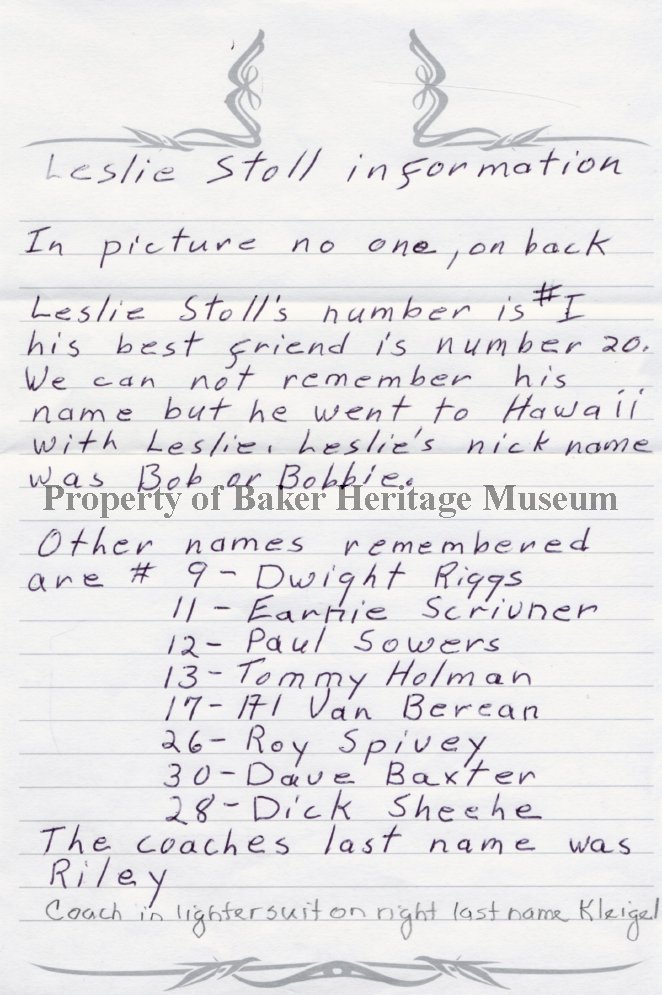 Leslie Stoll information
In picture no one, on back
Leslie Stoll's number is #I
his best friend is number 20.
We can not remember his
name but he went to Hawaii
with Leslie. Leslie's nick name
was Bob or Bobbie.
Property of Baker Heritage Museum
Other names remembered
are # 9 - Dwight Riggs
11 - Earnie Scrivner
12 - Paul Sowers
13 - Tommy Holman
17 - Al Van Berean
26 - Roy Spivey
30 - Dave Baxter
28 - Dick Sheehe
The coaches last name was
Riley
Coach in lighter suit on right last name Kleigel